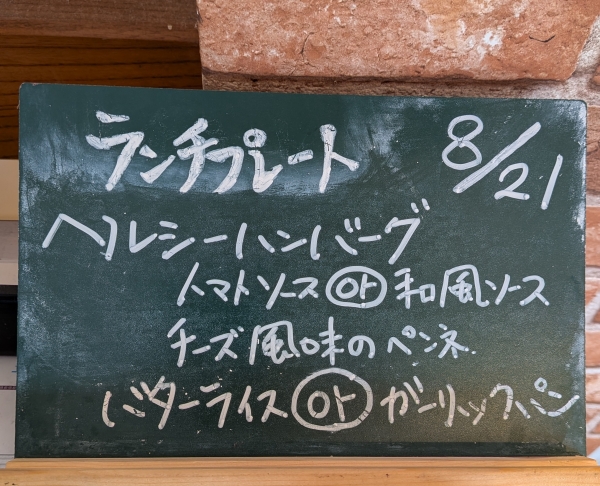 ランチプレート 8/21
ヘルシーハンバーグ
トマトソース or 和風ソース
チーズ風味のペンネ
バターライス or ガーリックパン